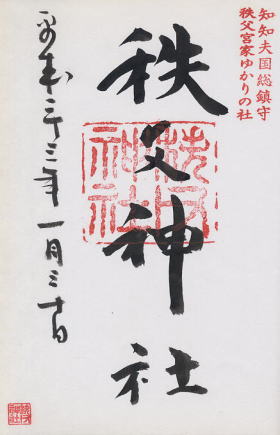 知知夫国総鎮守
秩父宮家ゆかりの社
秩父神社
秩父神社
平成二十三年一月三十日